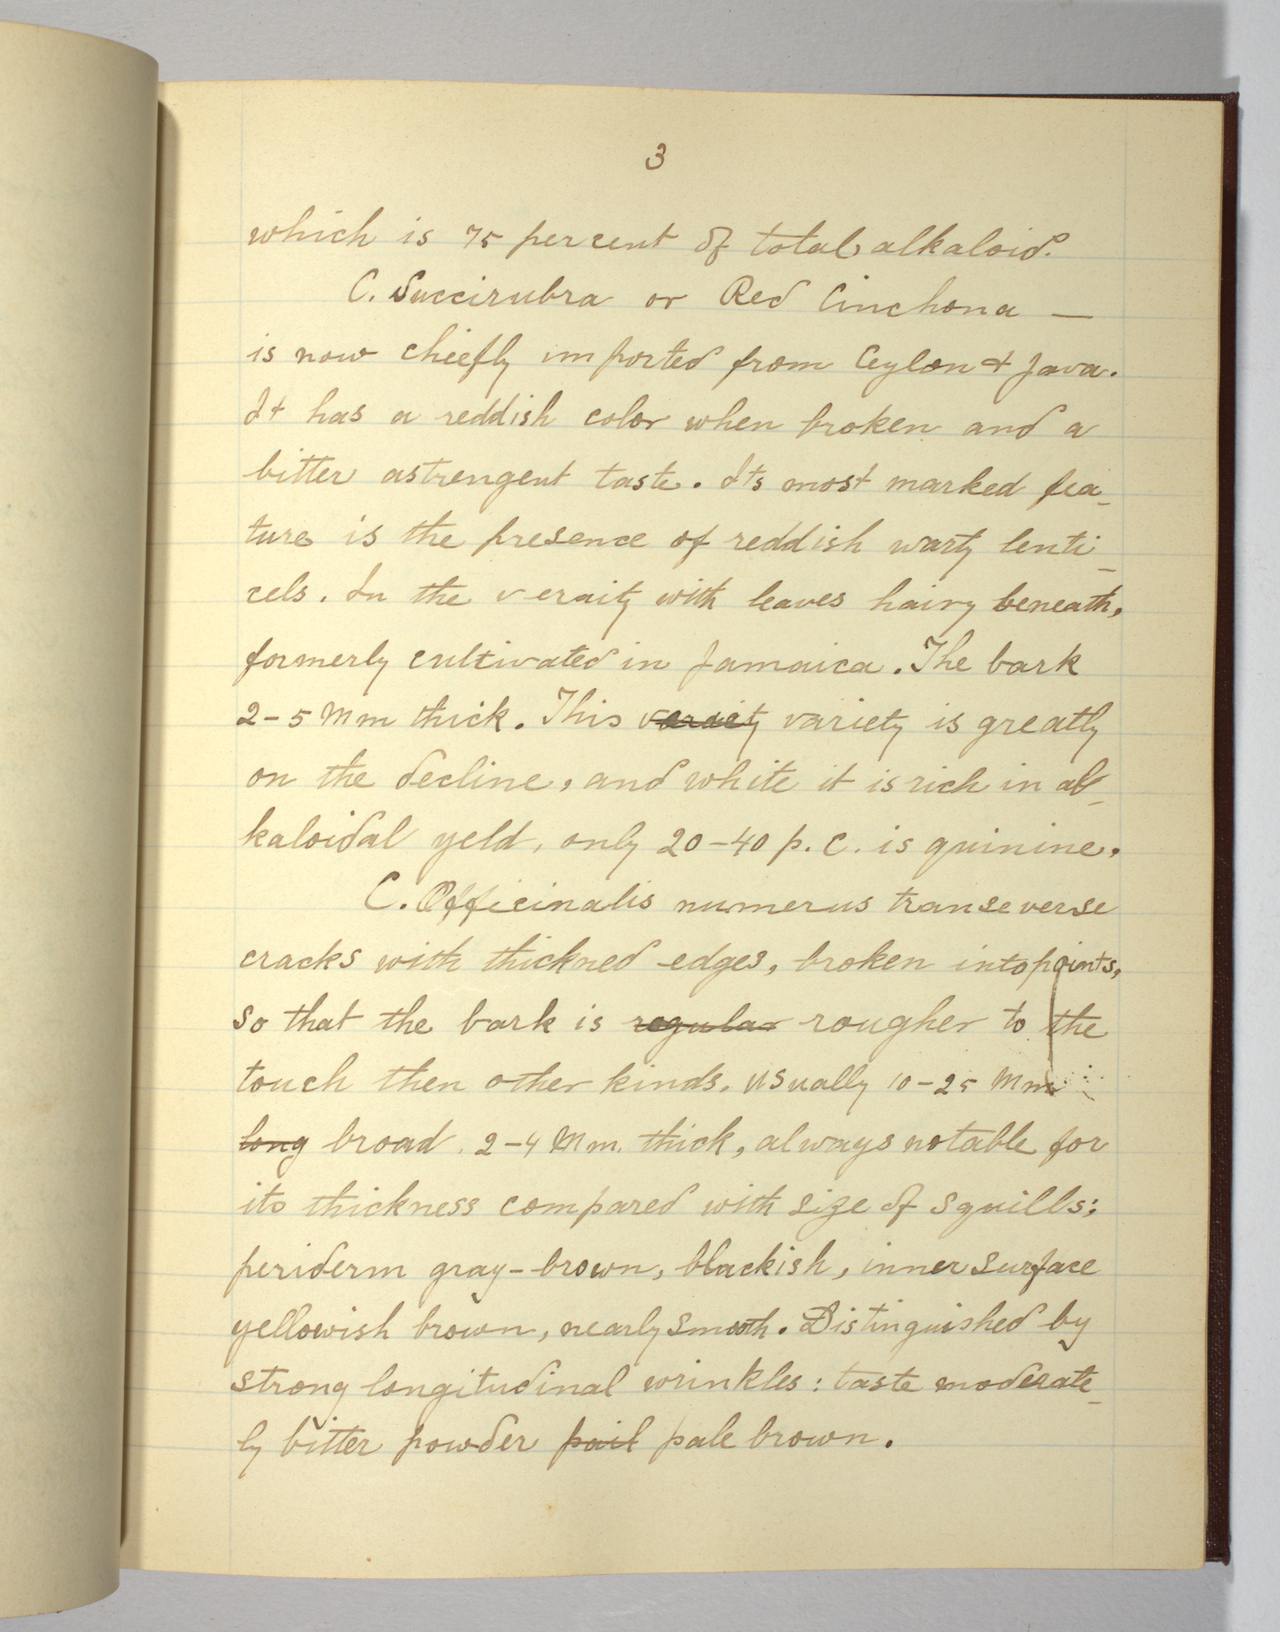 3
which is 75 per cent of total alkaloid.
C. Succirubra or Red Cinchona —
is now chiefly imported from Ceylon & Java.
It has a reddish color when broken and a
bitter astrengent taste. Its most marked fea-
ture is the presence of reddish warty lenti-
cels. In the veraity with leaves hairy beneath,
formerly cultivated in Jamaica. The bark
2-5 Mm thick. This veraity variety is greatly
on the decline, and while it is rich in al-
kaloidal yeld, only 20-40 p. c. is quinine.
C. Officinalis numerus transeverse
cracks with thickned edges, broken into points,
so that the bark is regular rougher to the
touch then other kinds. usually 10-25 Mm
long broad. 2-4 Mm. thick, always notable for
its thickness compared with size of squills;
periderm gray-brown, blackish, inner surface
yellowish brown, nearly smooth. Distinguished by
strong longitudinal wrinkles: taste moderate-
ly bitter powder pail pale brown.